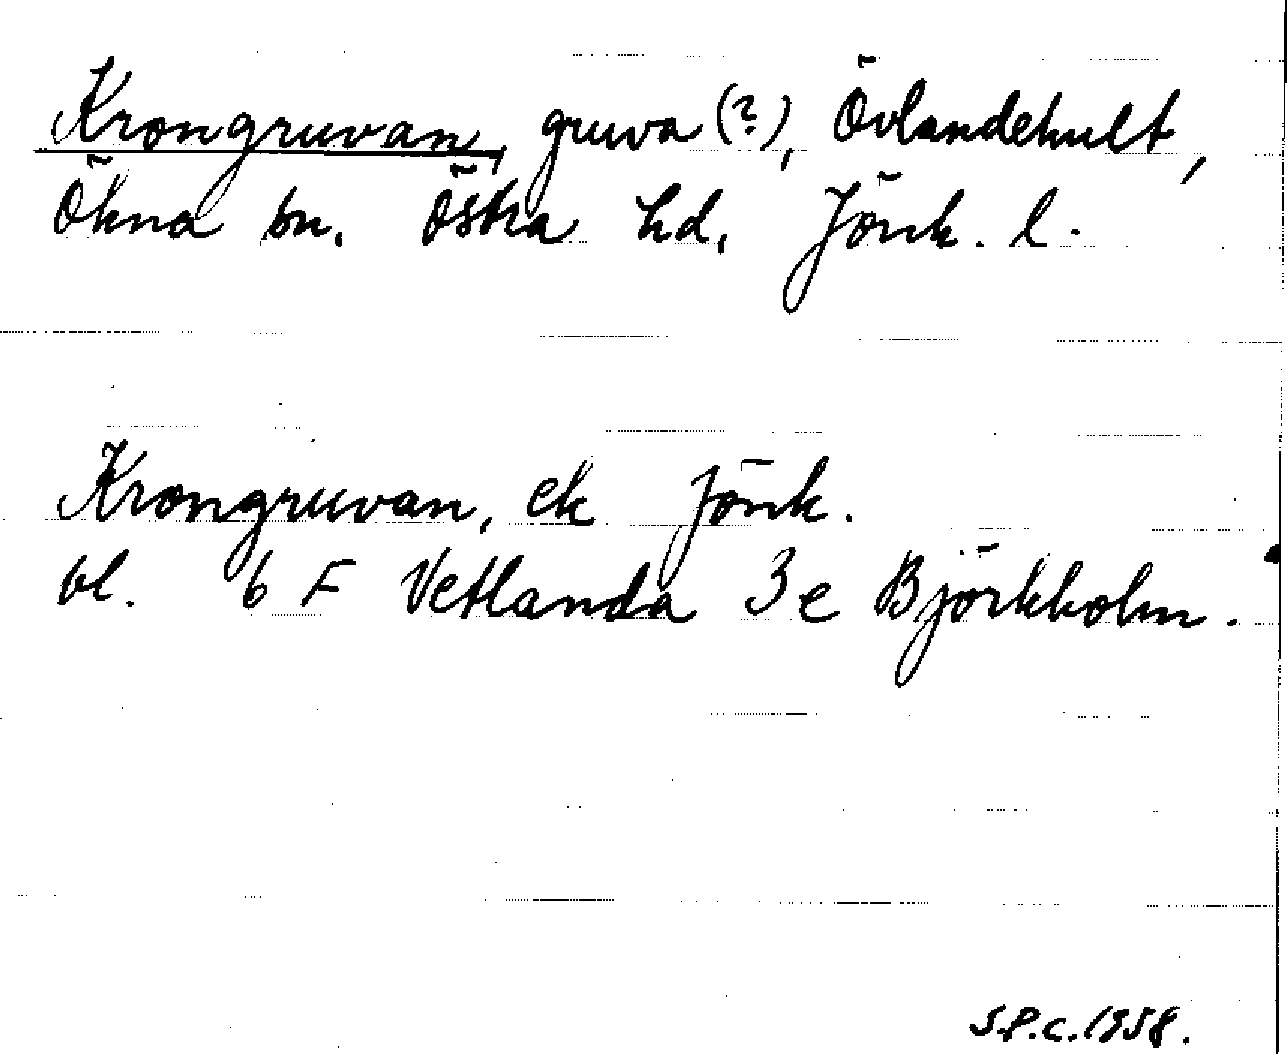 Krongruvan, gruva (?), Övlandehult,
Ökna sn. Östra hd, Jönk. l.
Krongruvan, ek Jönk.
bl. 6 F Vetlanda 3e Björkholm.
S.P.C. 1958.